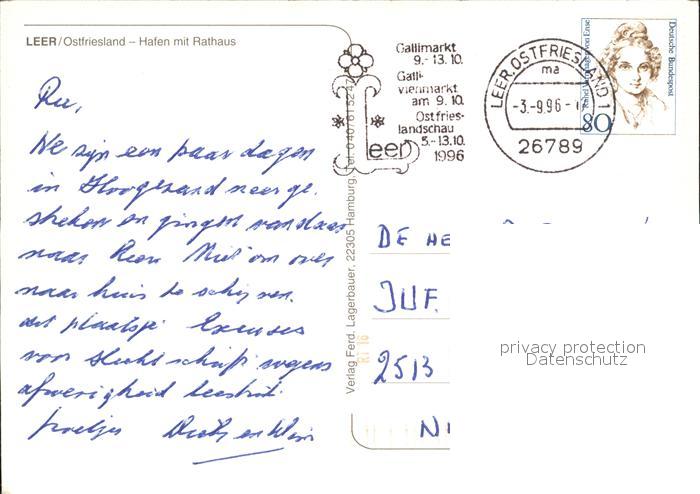 LEER/Ostfriesland – Hafen mit Rathaus
We zijn een paar dagen
in Hoogezand neerge-
streken en gingen vandaar
naar Leer. Niet om over
naar huis te schrijven.
dit plaatsje Excuses
voor slecht schrift wegens
afwezigheid leesbril.
groetjes
Verlag Ferd. Lagerbauer, 22305 Hamburg, Tel. 040/
Gallimarkt
9.- 13.10.
Galli-
viehmarkt
am 9.10.
Ostfries-
landschau
5.-13.10.
1996
Leer
LEER, OSTFRIESLAND 1
ma
-3.-9.96-
26789
Deutsche Bundespost
Rahel Varnhagen von Ense
80
DE HE
JUF.
2513
privacy protection
Datenschutz